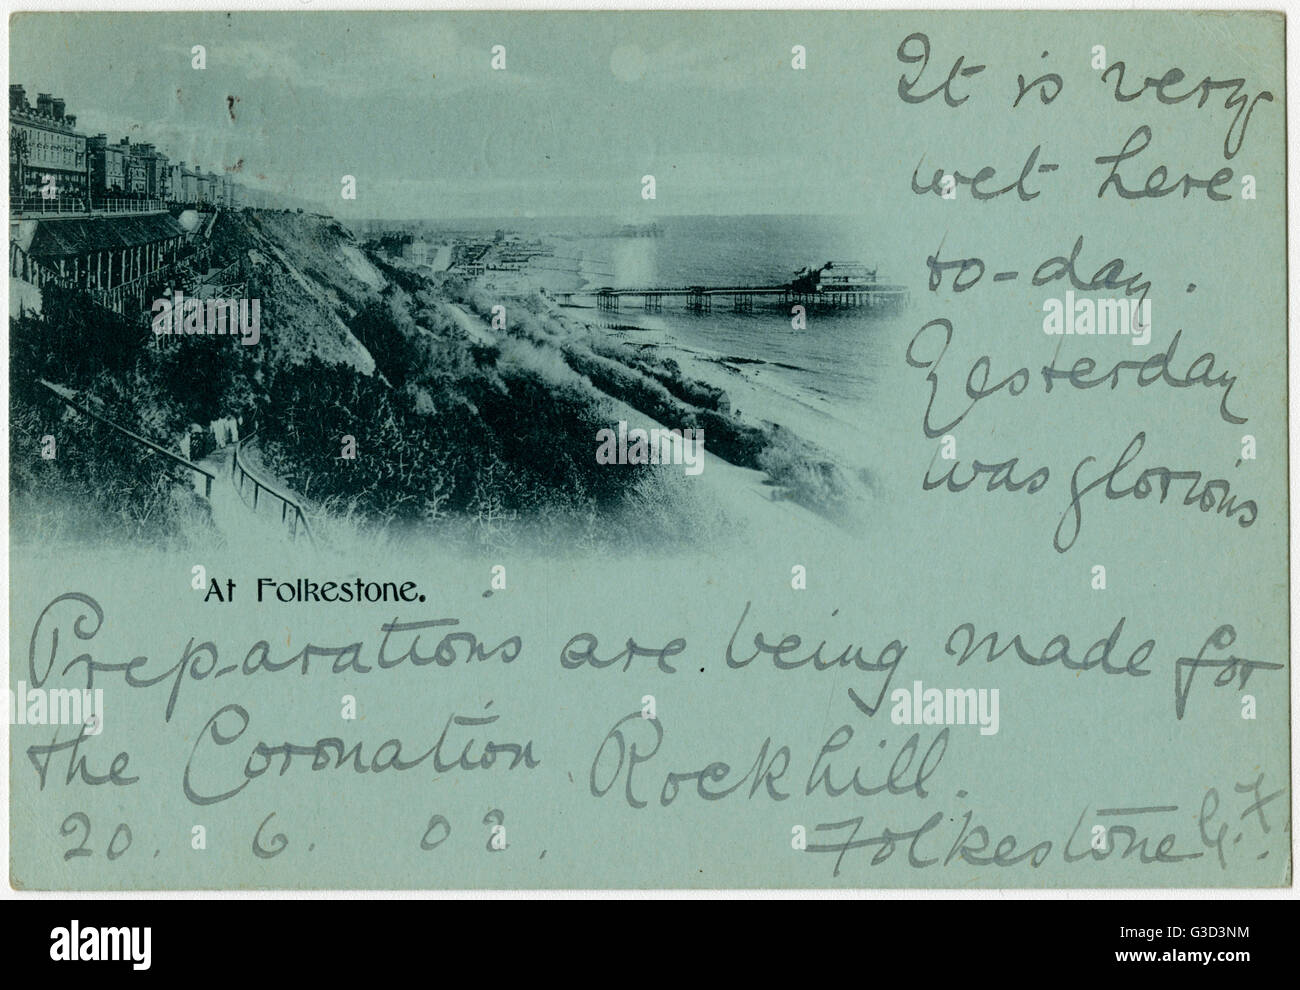 It is very
wet here
to-day.
Yesterday
was glorious
At Folkestone.
Preparations are being made for
the Coronation. Rockhill.
20. 6. 02.
Folkestone
alamy
Image ID: G3D3NM
www.alamy.com